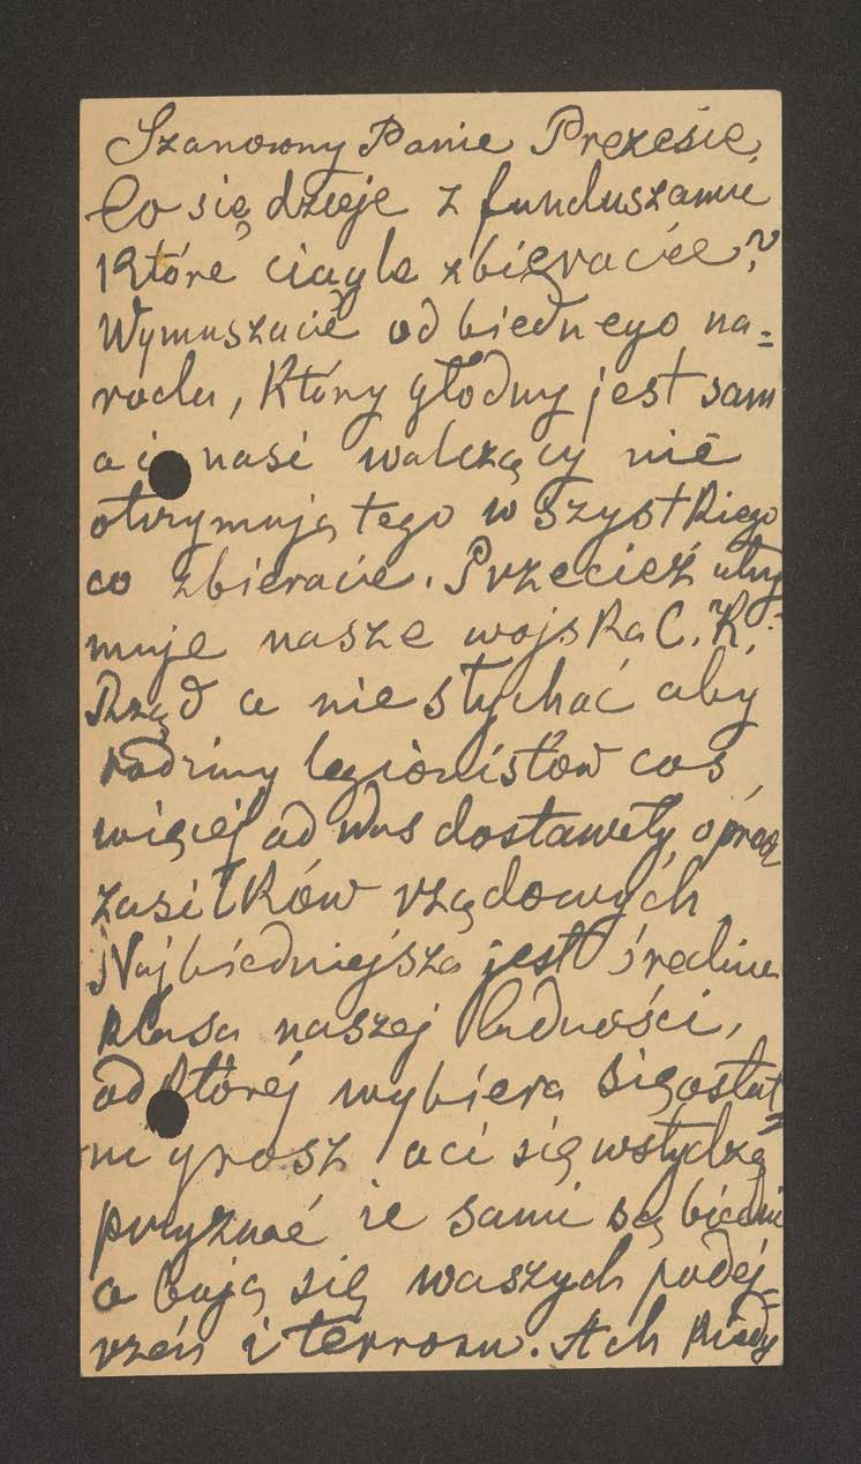 Szanowny Panie Prezesie,
Co się dzieje z funduszami
Które ciągle zbieracie?
Wymuszacie od biednego na=
rodu, Który głodny jest sam
a i nasi walczący nie
otrzymują tego wszystkiego
co zbieracie. Przecież utrzy
muje nasze wojska C. K.
Rząd a nie słychać aby
rodziny legionistów coś
więcej od Was dostawały oprócz
zasiłków rządowych
Najbiedniejsza jest średnia
klasa naszej ludności,
od której wybiera się ostat=
ni grosz a ci się wstydzą
przyznać że sami są biedni
a boją się waszych podej=
rzeń i terroru. Ach kiedy